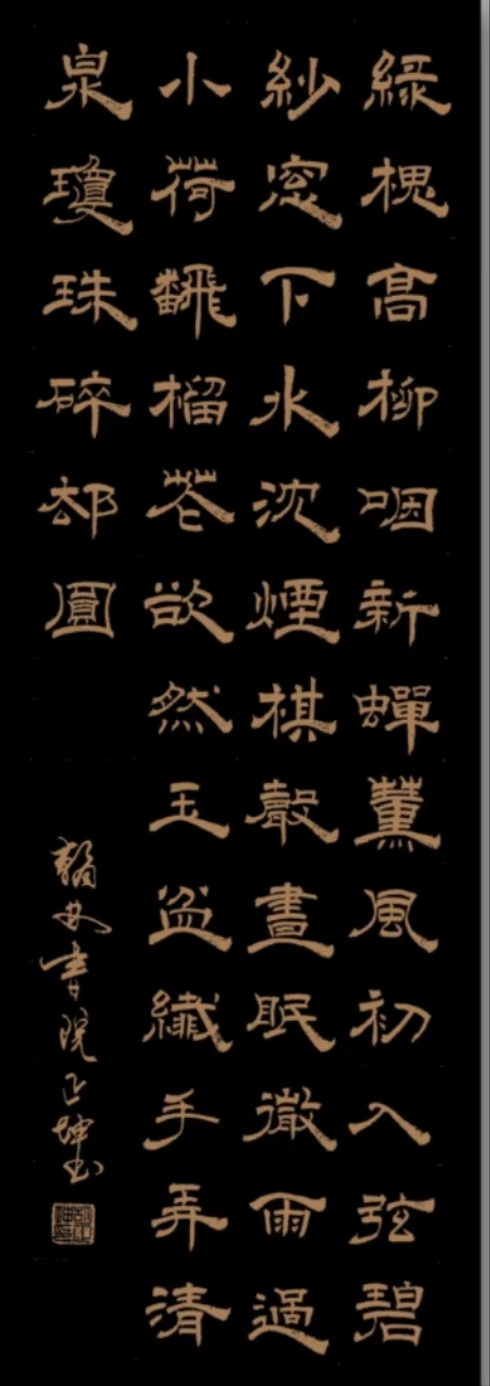 綠槐高柳咽新蟬薰風初入弦碧
紗窓下水沈煙棋聲晝眠微雨過
小荷飜榴花欲然玉盆纖手弄清
泉瓊珠碎却圓
翰林書院正坤书